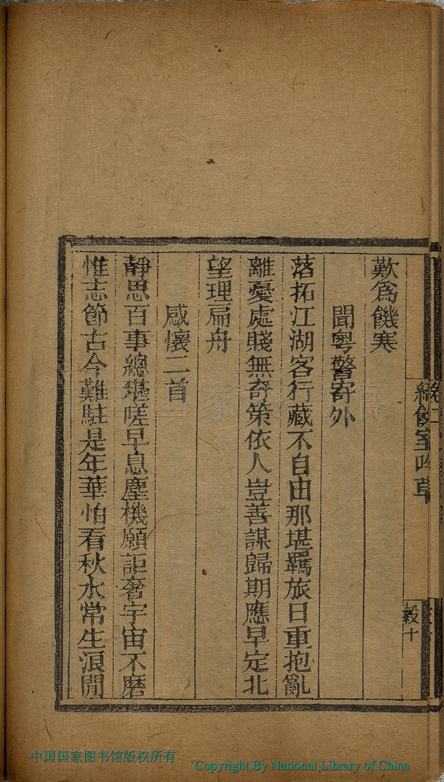 歎為饑寒
聞粵警寄外
落拓江湖客行藏不自由那堪羈旅日重抱亂
離憂處賤無奇策依人豈善謀歸期應早定北
望理扁舟
感懷二首
靜思百事總堪嗟早息塵機願詎奢宇宙不磨
惟志節古今難駐是年華怕看秋水常生浪閒
卷二
室吟草
十
中国国家图书馆版权所有
Copyright By National Library of China